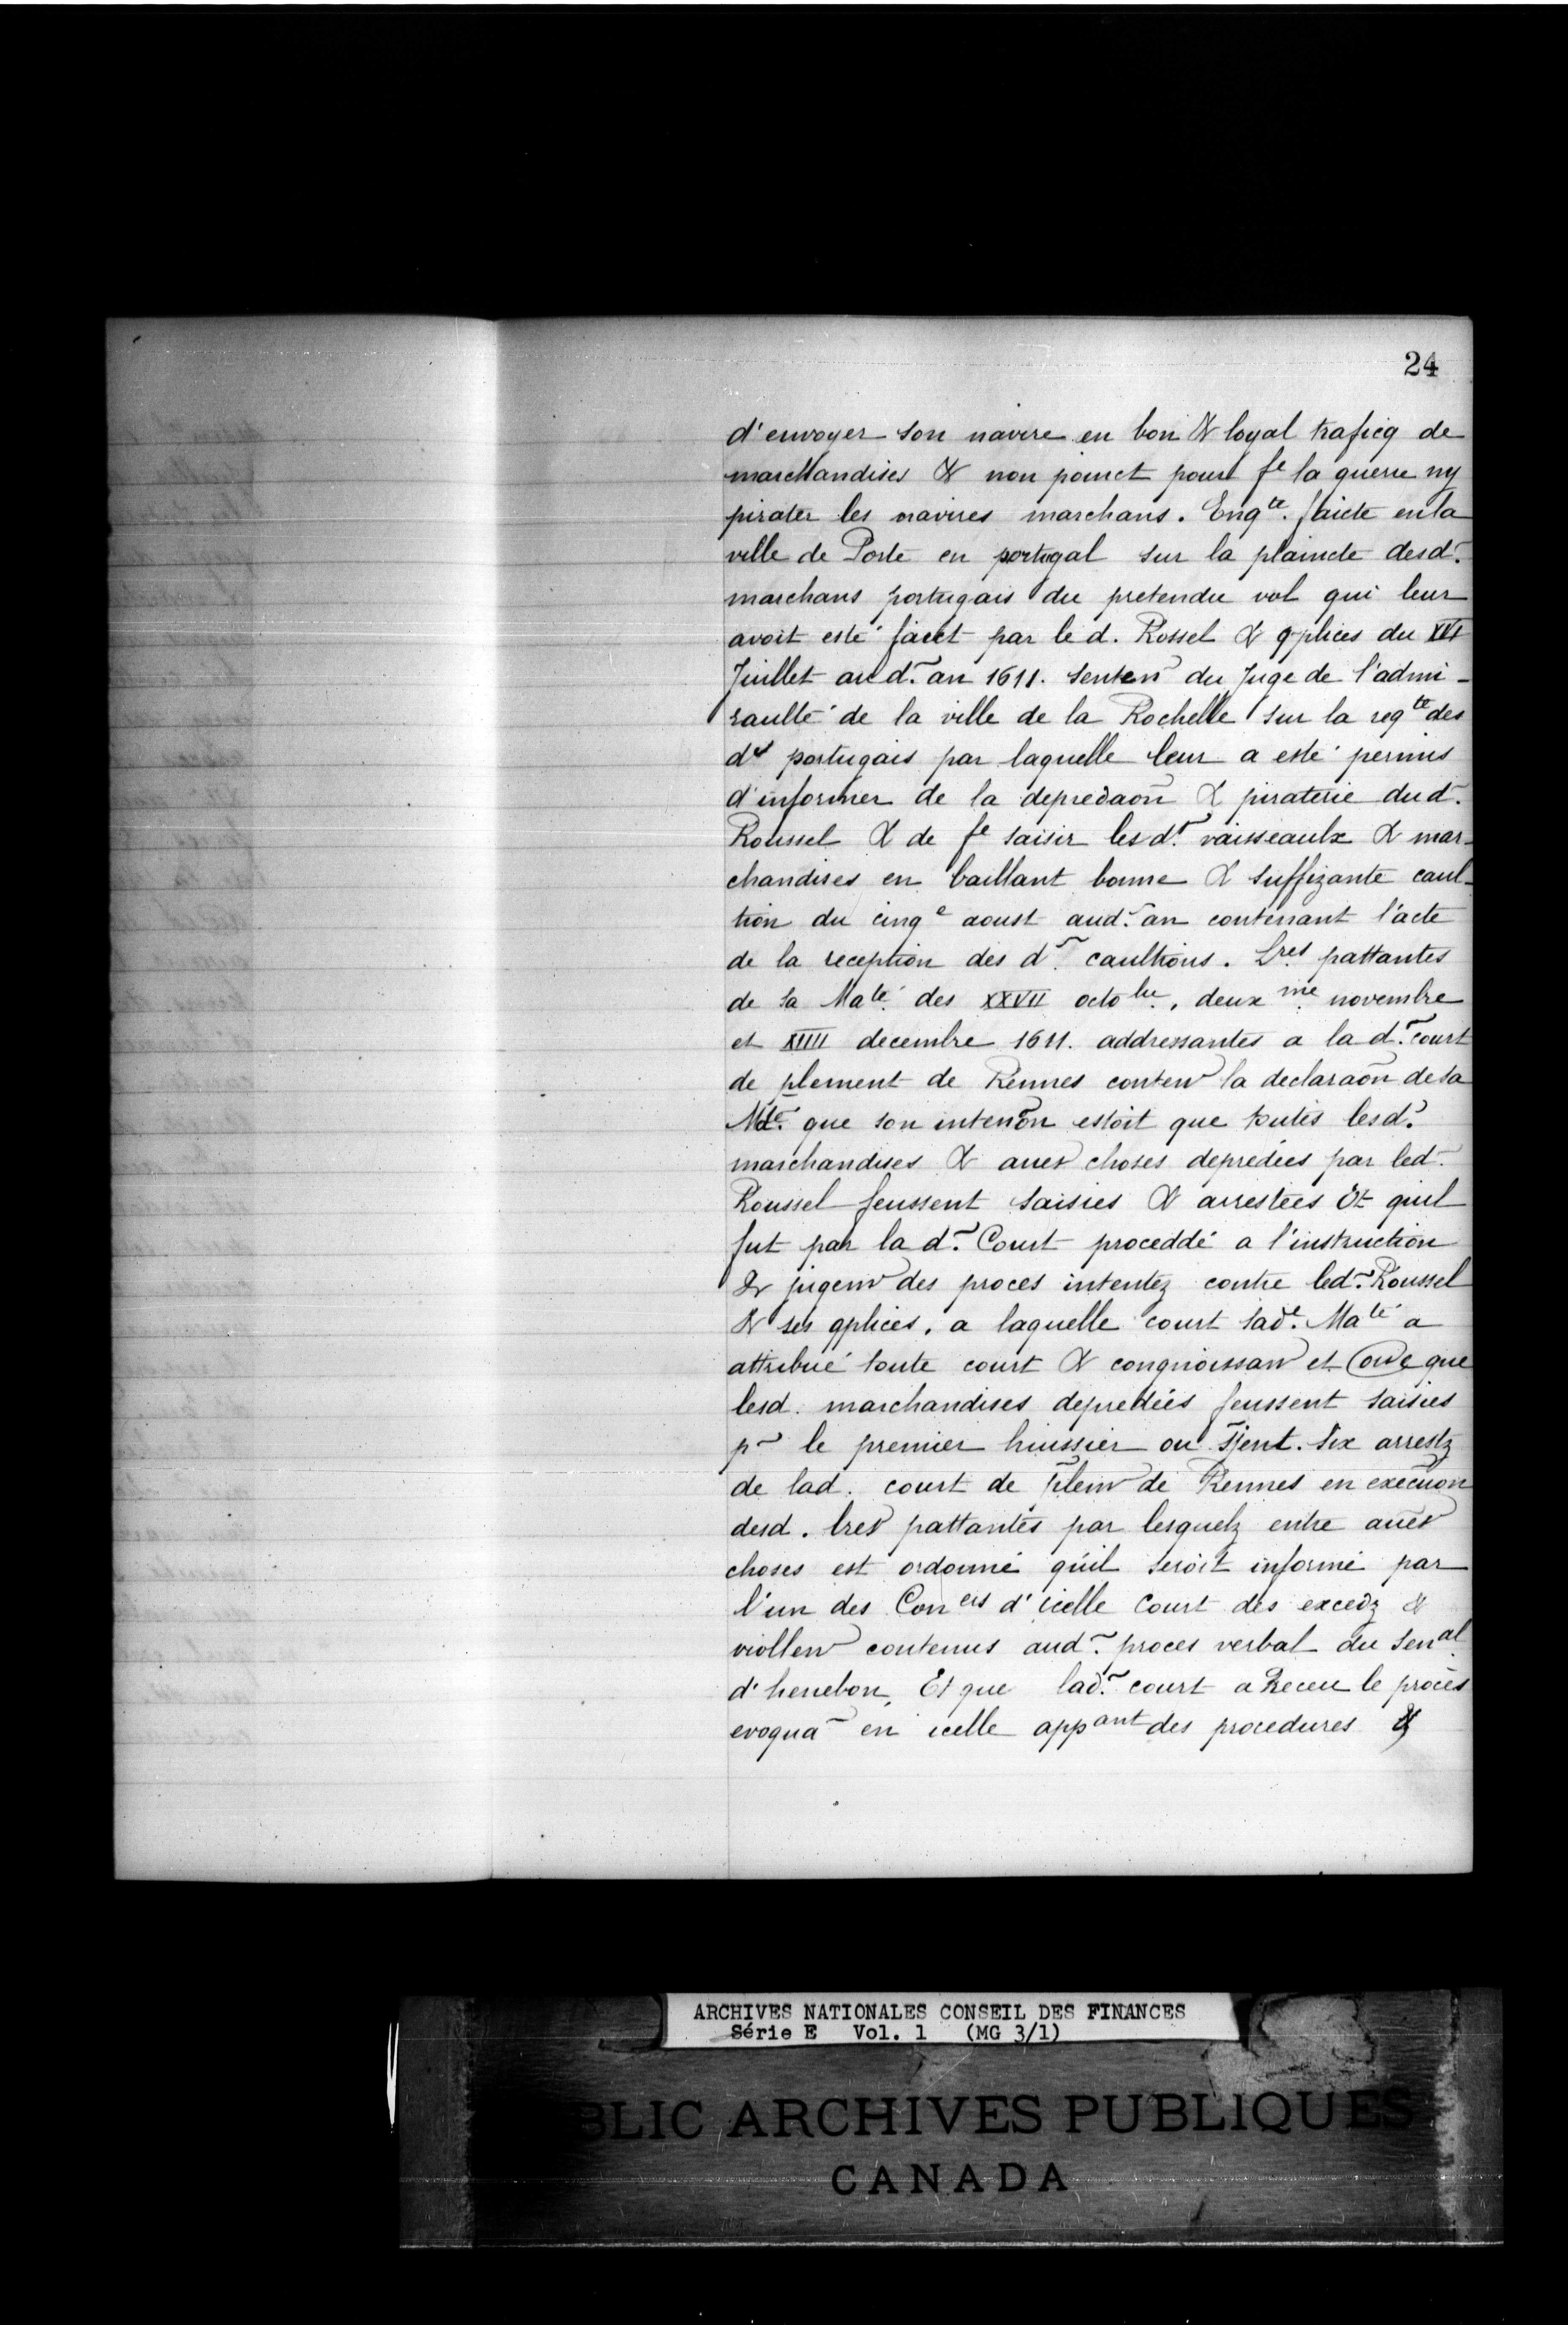 24
d'envoyer son navire en bon & loyal traficq de
marchandises & non poinct pour fe la guerre ny
pirater les navires marchans. Enqte. faicte en la
ville de Porte en portugal sur la plaincte desd.
marchans portugais du pretendu vol qui leur
avoit esté faict par le d. Rossel & 9plices du XVI
Juillet au d. an 1611. Senten du Juge de l'admi-
raulté de la ville de la Rochelle sur la reqte des
ds portugais par laquelle leur a esté permis
d'informer de la depredaõn & piraterie dud.
Roussel & de fe saisir lesd. vaisseaulx & mar-
chandises en baillant bonne & suffizante caul-
tion du cinqe aoust aud. an contenant l'acte
de la reception des d. caultions. Lres pattantes
de sa Maté des XXVII octobre, deuxme novembre
et XIIII decembre 1611. addressantes a la d. court
de plement de Rennes conten la declaraõn de sa
Mté. que son intenõn estoit que toutes lesd.
marchandises & aues choses depredées par led.
Roussel feussent saisies & arrestées Et quil
fut par la d. Court proceddé a l'instruction
& jugem des proces intentez contre led. Roussel
& ses 9plices, a laquelle court sade. Maté a
attribué toute court & congnoissan et que
lesd. marchandises depredées feussent saisies
p le premier huissier ou sjent. Six arrestz
de lad. court de plem de Rennes en execuõn
desd. lres pattantes par lesquelz entre aues
choses est ordonné quil seroit informé par
l'un des Coners d'icelle Court des excedz &
viollen contenus aud. proces verbal du Senal
d'henebon, Et que lad. court a receu le procès
evoqua en icelle appant des procedures &
ARCHIVES NATIONALES CONSEIL DES FINANCES
Série E Vol. 1 (MG 3/1)
BLIC ARCHIVES PUBLIQUES
CANADA